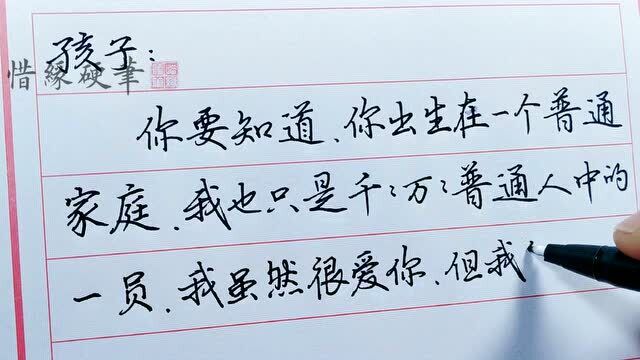 孩子：
惜緣硬筆
你要知道、你出生在一个普通
家庭、我也只是千〻万〻普通人中的
一员、我虽然很爱你、但我